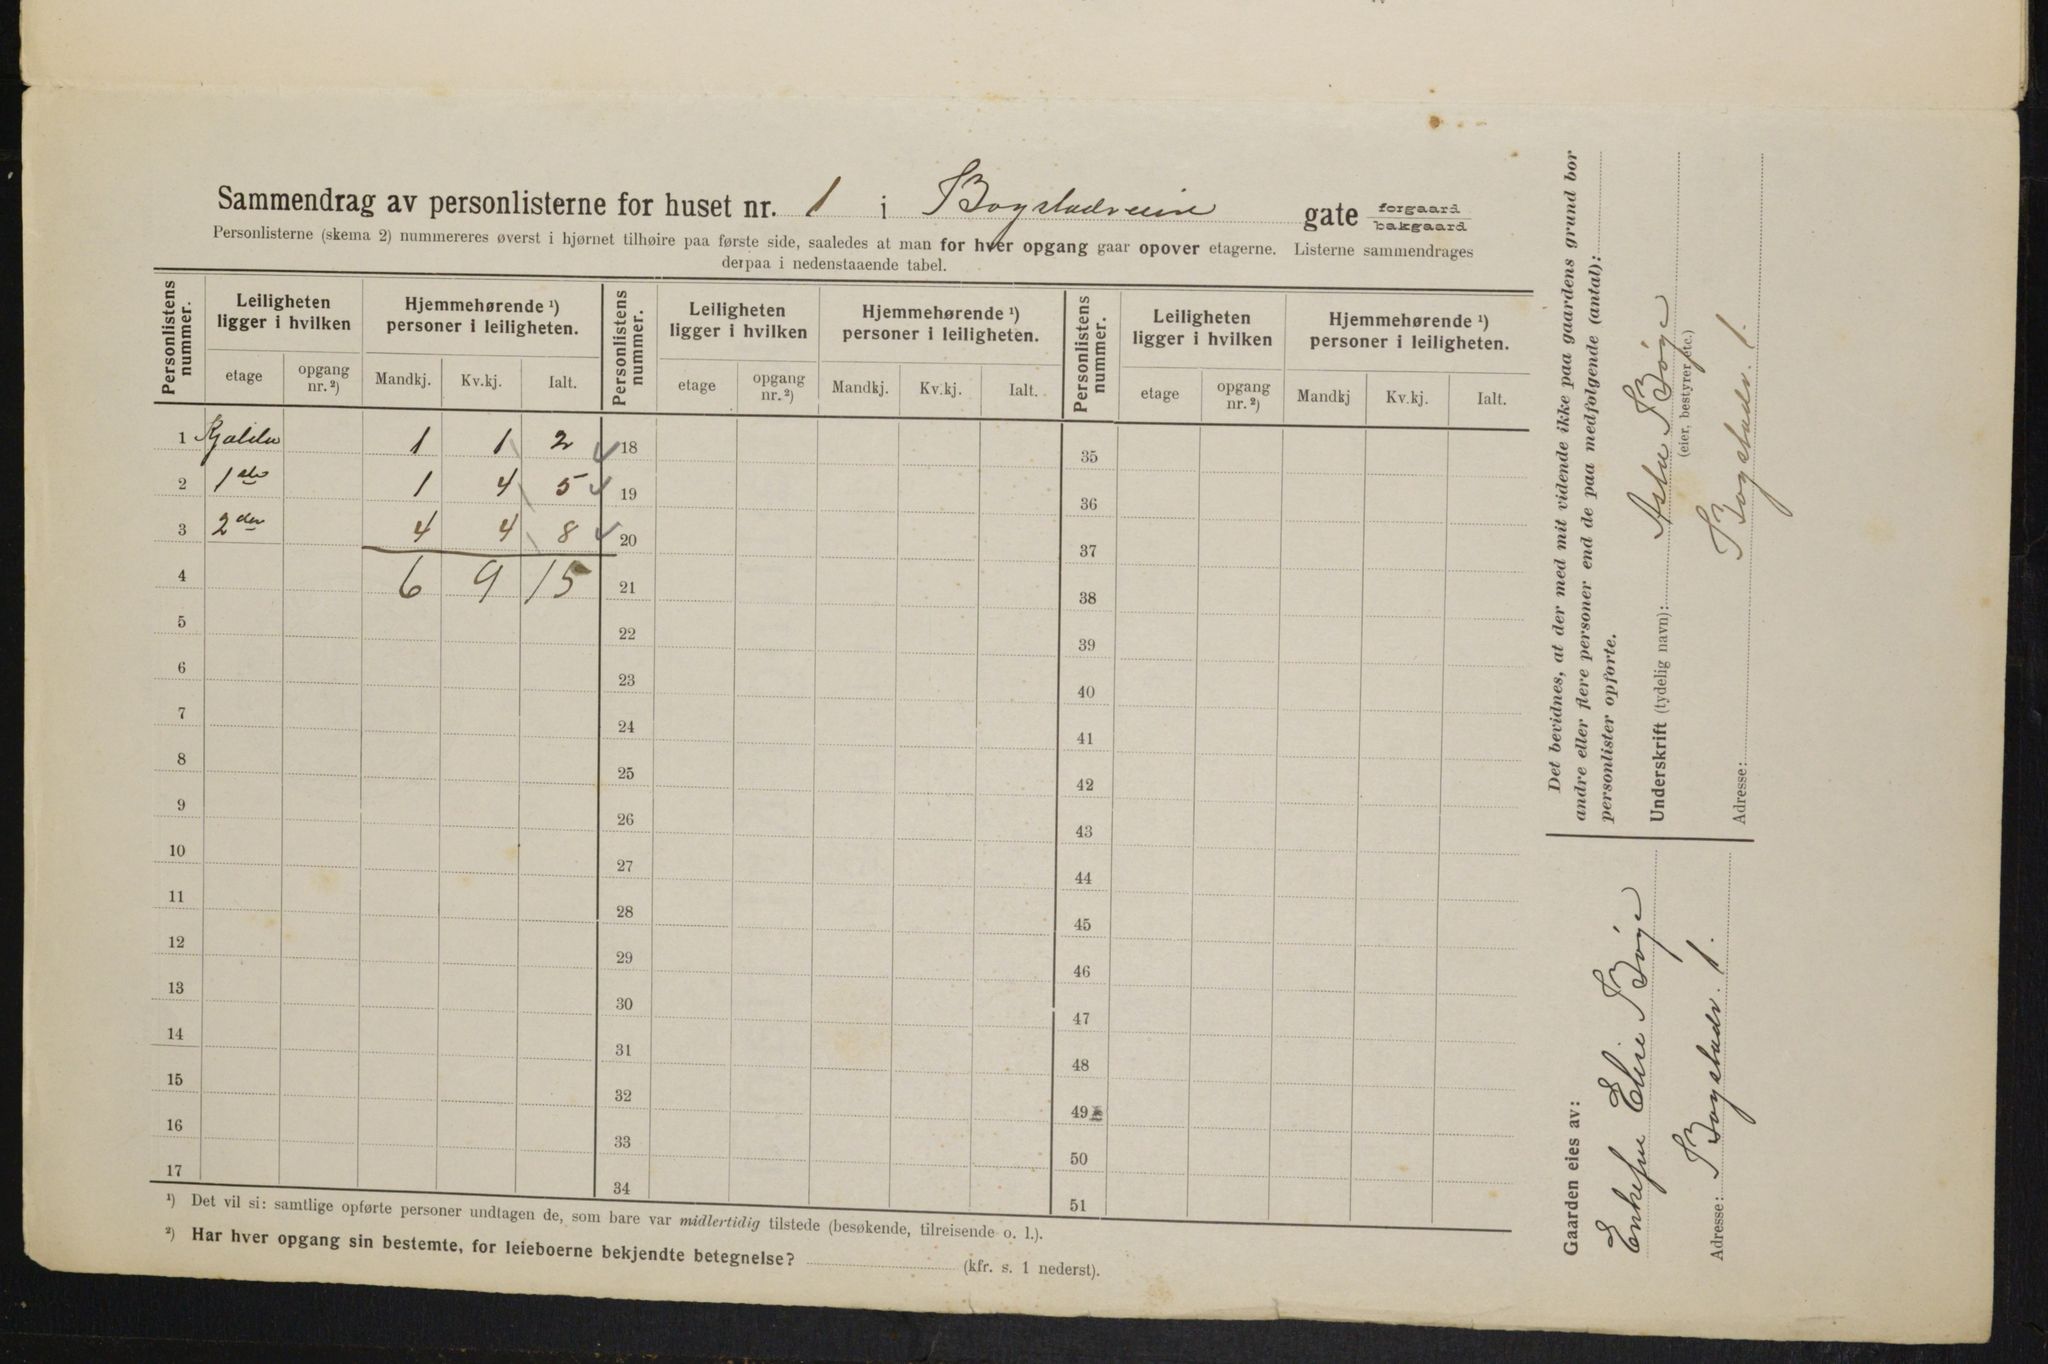 Sammendrag av personlisterne for huset nr. 1 i Bogstadveien gate forgaard bakgaard
Personlisterne (skema 2) nummereres øverst i hjørnet tilhøire paa første side, saaledes at man for hver opgang gaar opover etagerne. Listerne sammendrages
derpaa i nedenstaaende tabel.
Personlistens nummer. Leiligheten ligger i hvilken Hjemmehørende ¹) personer i leiligheten. Personlistens nummer. Leiligheten ligger i hvilken Hjemmehørende ¹) personer i leiligheten. Personlistens nummer. Leiligheten ligger i hvilken Hjemmehørende ¹) personer i leiligheten.
etage opgang nr. ²) Mandkj. Kv.kj. Ialt. etage opgang nr. ²) Mandkj. Kv.kj. Ialt. etage opgang nr. ²) Mandkj Kv.kj. Ialt.
1 1 1 2 18 35
2 1ste 1 4 5 19 36
3 2den 4 4 8 20 37
4 6 9 15 21 38
5 22 39
6 23 40
7 24 41
8 25 42
9 26 43
10 27 44
11 28 45
12 29 46
13 30 47
14 31 48
15 32 49
16 33 50
17 34 51
¹) Det vil si: samtlige opførte personer undtagen de, som bare var midlertidig tilstede (besøkende, tilreisende o. l.).
²) Har hver opgang sin bestemte, for leieboerne bekjendte betegnelse? (kfr. s. 1 nederst).
Det bevidnes, at der med mit vidende ikke paa gaardens grund bor
andre eller flere personer end de paa medfølgende (antal):
personlister opførte.
Underskrift (tydelig navn): Asta Bøge
(eier, bestyrer etc.)
Adresse: Bogstadv. 1.
Gaarden eies av:
Enkefru Elise Bøge
Adresse: Bogstadv. 1.